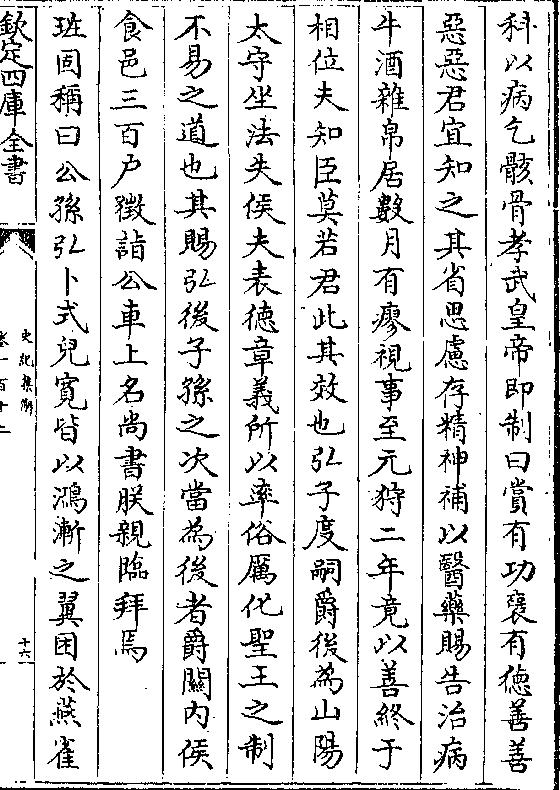 科以病乞骸骨孝武皇帝即制曰賞有功襃有德善善
惡惡君宜知之其省思慮存精神補以醫藥賜告治病
牛酒雜帛居數月有瘳視事至元狩二年竟以善終于
相位夫知臣莫若君此其效也弘子度嗣爵後為山陽
太守坐法失侯夫表德章義所以率俗厲化聖王之制
不易之道也其賜弘後子孫之次當為後者爵關内侯
食邑三百户徵詣公車上名尚書朕親臨拜焉
班固稱曰公孫弘卜式兒寛皆以鴻漸之翼困於燕雀
欽定四庫全書
史記集解
卷一百十二
十六